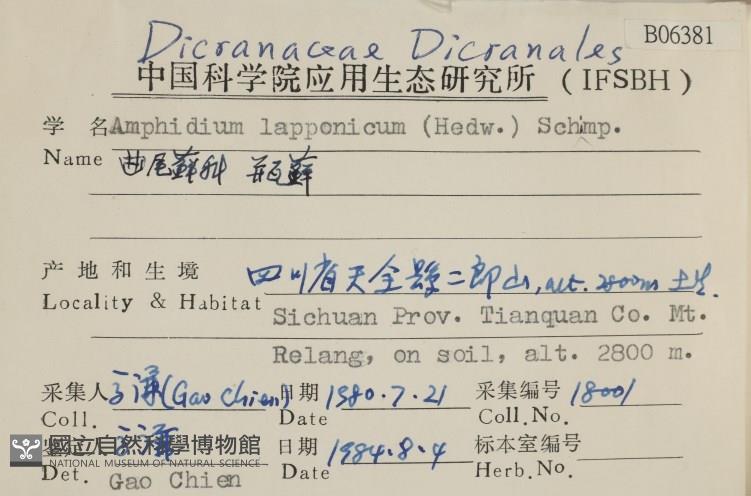 B06381
Dicranaceae Dicranales
中国科学院应用生态研究所 (IFSBH)
学 名 Amphidium lapponicum (Hedw.) Schimp.
Name 曲尾藓科 瓶藓
产地和生境 四川省天全縣二郎山, alt. 2800m 土生.
Locality & Habitat Sichuan Prov. Tianquan Co. Mt.
Relang, on soil, alt. 2800 m.
采集人 (Gao Chien) 日期 1980.7.21 采集编号 18001
Coll. Date Coll.No.
國立自然科學博物館 日期 1984.8.4 标本室编号
NATIONAL MUSEUM OF NATURAL SCIENCE
Det. Gao Chien Date Herb.No.